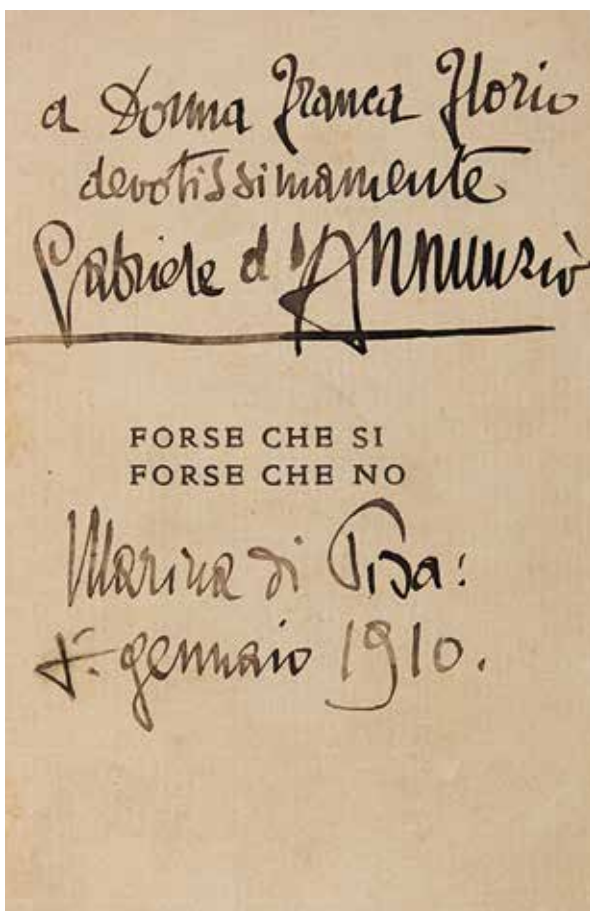 a Donna Franca Florio
devotissimamente
Gabriele d'Annunziò
FORSE CHE SI
FORSE CHE NO
Marina di Pisa:
gennaio 1910.